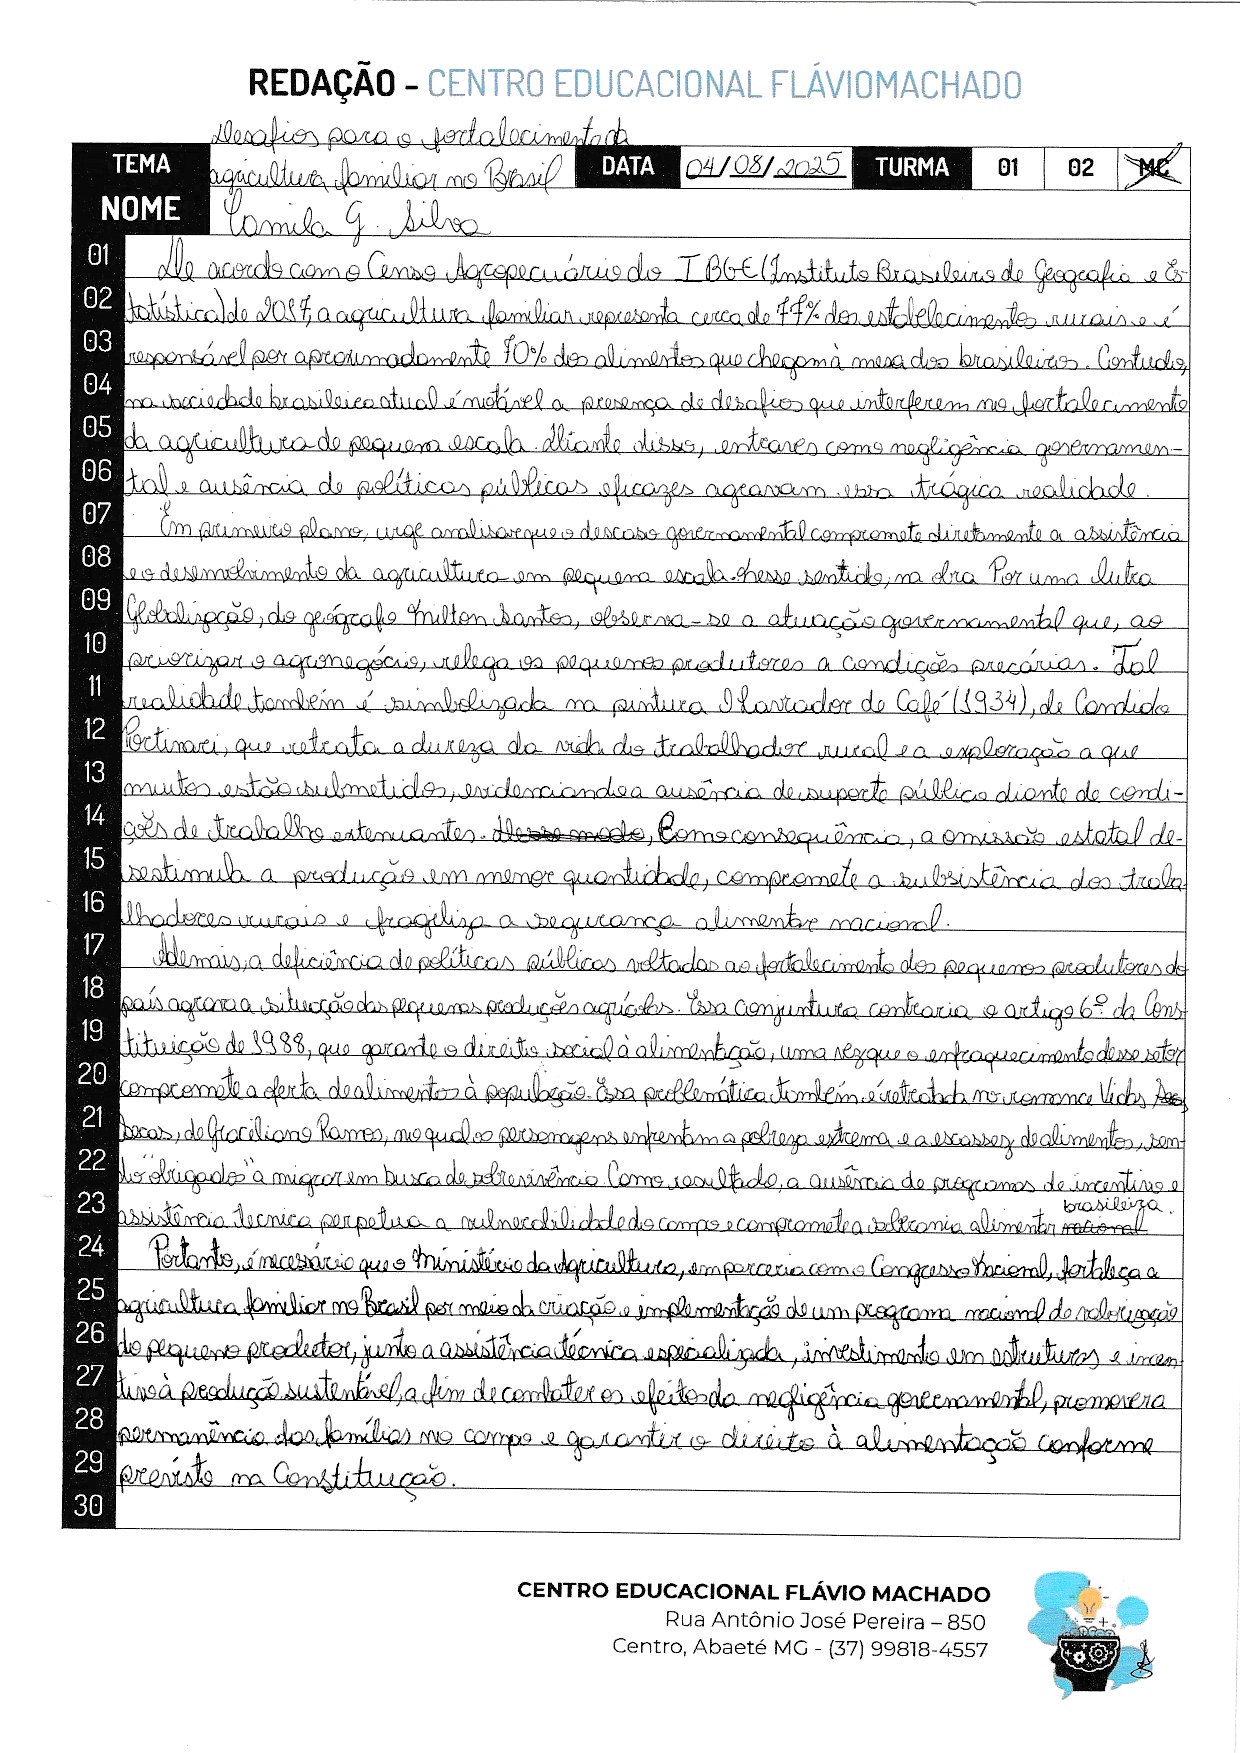 REDAÇÃO - CENTRO EDUCACIONAL FLÁVIOMACHADO
Desafios para o fortalecimento da
TEMA agricultura familiar no Brasil DATA 04/08/2025 TURMA 01 02 MC
NOME Camila G. Silva
01 De acordo com o Censo Agropecuário do IBGE (Instituto Brasileiro de Geografia e Es-
02 tatística) de 2017, a agricultura familiar representa cerca de 77% dos estabelecimentos rurais e é
03 responsável por aproximadamente 70% dos alimentos que chegam à mesa dos brasileiros. Contudo,
04 na sociedade brasileira atual é notável a presença de desafios que interferem no fortalecimento
05 da agricultura de pequena escala. Diante disso, entraves como negligência governamen-
06 tal e ausência de políticas públicas eficazes agravam essa trágica realidade.
07 Em primeiro plano, urge analisar que o descaso governamental compromete diretamente a assistência
08 e o desenvolvimento da agricultura em pequena escala. Nesse sentido, na obra Por uma Outra
09 Globalização, do geógrafo Milton Santos, observa-se a atuação governamental que, ao
10 priorizar o agronegócio, relega os pequenos produtores a condições precárias. Tal
11 realidade também é simbolizada na pintura O Lavrador de Café (1934), de Candido
12 Portinari, que retrata a dureza da vida do trabalhador rural e a exploração a que
13 muitos estão submetidos, evidenciando a ausência de suporte público diante de condi-
14 ções de trabalho extenuantes. Desse modo, Como consequência, a omissão estatal de-
15 sestimula a produção em menor quantidade, compromete a subsistência dos traba
16 lhadores rurais e fragiliza a segurança alimentar nacional.
17 Ademais, a deficiência de políticas públicas voltadas ao fortalecimento dos pequenos produtores do
18 país agrava a situação das pequenas produções agrícolas. Essa conjuntura contraria o artigo 6º da Cons-
19 tituição de 1988, que garante o direito social à alimentação, uma vez que o enfraquecimento desse setor
20 compromete a oferta de alimentos à população. Essa problemática também é retratada no romance Vidas
21 Secas, de Graciliano Ramos, no qual os personagens enfrentam a pobreza extrema e a escassez de alimentos, sen-
22 do "obrigados" a migrar em busca de sobrevivência. Como resultado, a ausência de programas de incentivo e
brasileira.
23 assistência técnica perpetua a vulnerabilidade do campo e compromete a soberania alimentar nacional
24 Portanto, é necessário que o Ministério da Agricultura, em parceria com o Congresso Nacional, fortaleça a
25 agricultura familiar no Brasil por meio da criação e implementação de um programa nacional de valorização
26 do pequeno produtor, junto a assistência técnica especializada, investimento em estruturas e incen
27 tivo à produção sustentável, a fim de combater os efeitos da negligência governamental, promover a
28 permanência das famílias no campo e garantir o direito à alimentação conforme
29 previsto na Constituição.
30
CENTRO EDUCACIONAL FLÁVIO MACHADO
Rua Antônio José Pereira – 850
Centro, Abaeté MG - (37) 99818-4557